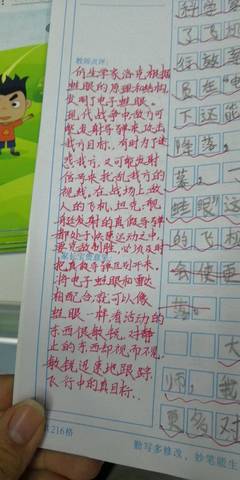 教师点评:
仿生学家洛克根据
蛙眼的原理和结构
发明了电子蛙眼。
现代战争中,敌方可
能发射导弹来攻击
我方目标,有时为了迷
惑我方,又可能发射
信号来扰乱我方的
视线,在战场上敌
人的飞机、坦克、舰
艇发射的真假导弹
都处于快速运动之中,
要克敌制胜,必须及时
家长宝贵意见:
把真假导弹区别开来。
将电子蛙眼和雷达
相配合,就可以像
蛙眼一样看活动的
东西很敏锐,对静
止的东西却视而不见,
敏锐迅速地跟踪
飞行中的真目标。
216格
勤写多修改,妙笔能生
科学家
了
员在电
下还能
降落,
落。一
蛙眼”这
的飞机
会使更
落。
大
师,我
更多对